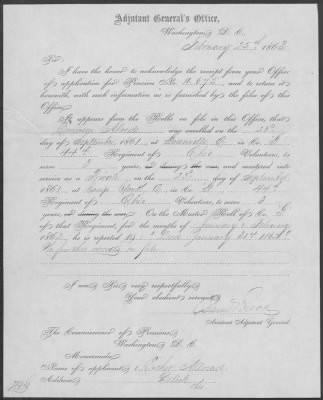 Adjutant General's Office,
Washington, D. C.
February 25th 1863
Sir:
I have the honor to acknowledge the receipt from your Office
of application for Pension No. 11.873, and to return it
herewith, with such information as is furnished by the files of this
Office.
It appears from the Rolls on file in this Office, that
was enrolled on the 28th
day of September 1861, at C. in Co. F
44th Regiment of Ohio Volunteers, to
serve 3 years, or during the war, and mustered into
service as a Private on the day of September
1861, at Camp C. in Co. F 44th
Regiment of Ohio Volunteers, to serve 3
years, or during the war. On the Muster Roll of Co. F
of that Regiment, for the months of January & February
1862, he is reported "Died January 31st 1862".
No further records on file.
I am, Sir, very respectfully,
Your obedient servant,
Assistant Adjutant General.
The Commissioner of Pensions,
Washington, D. C.
Memoranda:
Name of applicant,
Address,